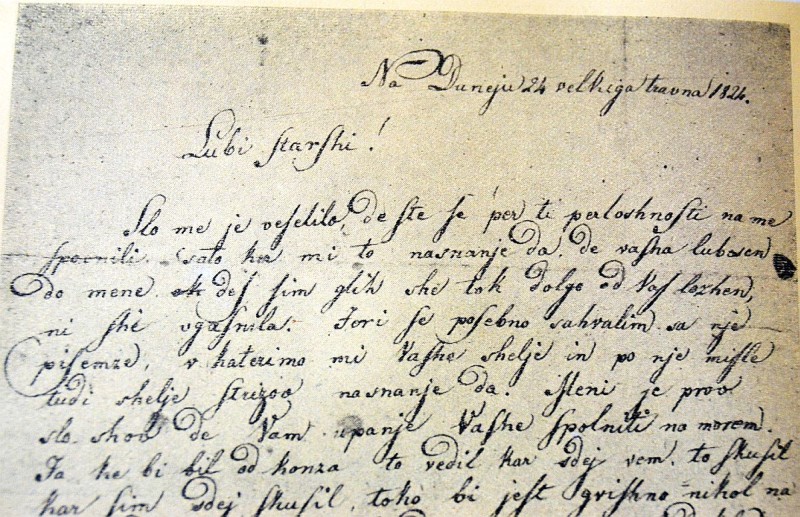 Na Duneju 24 velkiga travna 1824.
Lubi starshi!
Slo me je veselilo, de ste se per ti perloshnosti na me
spomnili sato ker mi to nasnanje da. de vasha lubesen
do mene desj sim glih she tok dolgo od Vas lozhen,
ni she vgasnila. Jori se posebno sahvalim sa nje
pisemze, v katerimo mi Vashe shelje in po nje misle
tudi shelje strizov nasnanje da. Meni je prov
slo shov de Vam upanje Vashe spolniti na morem.
Ja ke bi bil od konza to vedil kar sdej vem. to skusil
kar sim sdej skusil, toko bi jest gvishno nikol na